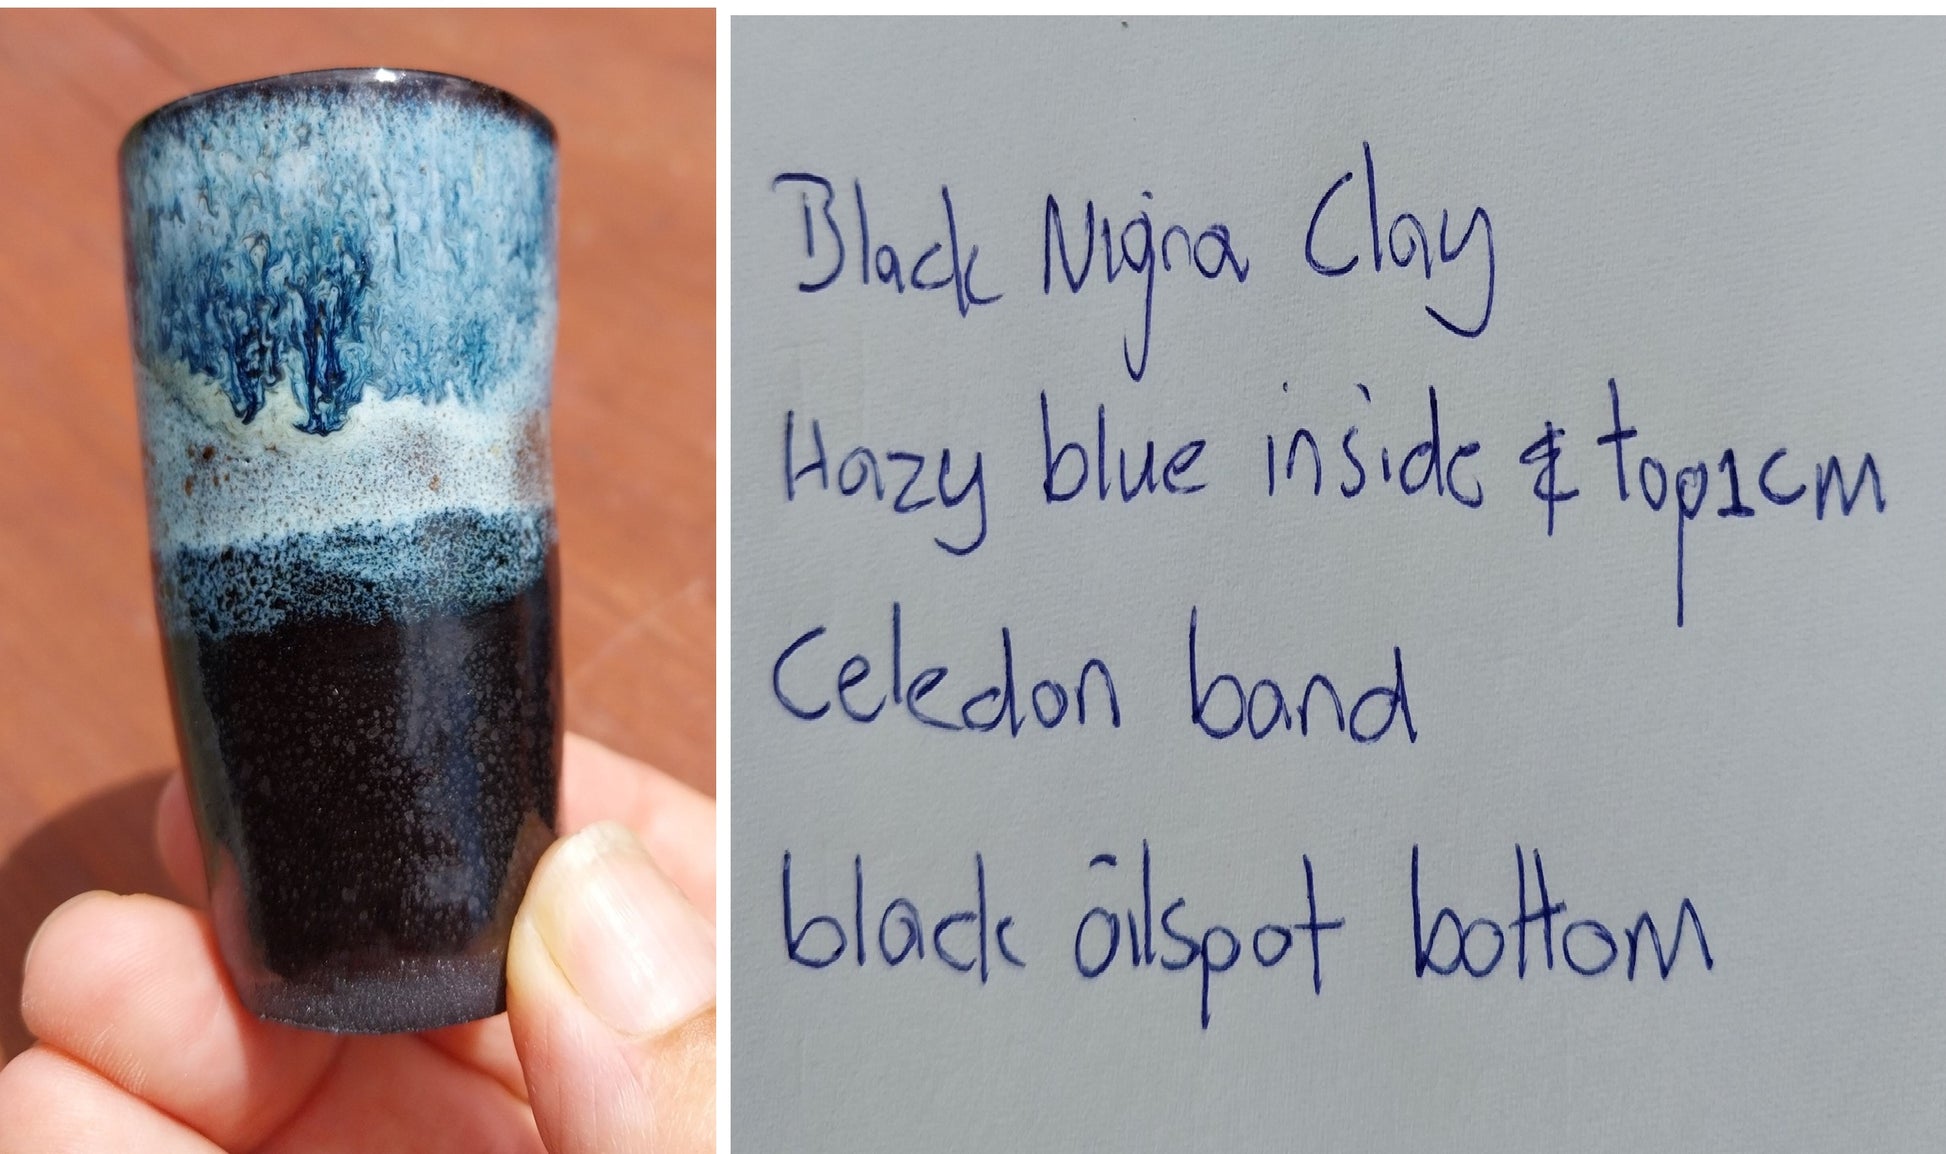 Black Nigra Clay
Hazy blue inside & top 1cm
Celedon band
black oilspot bottom